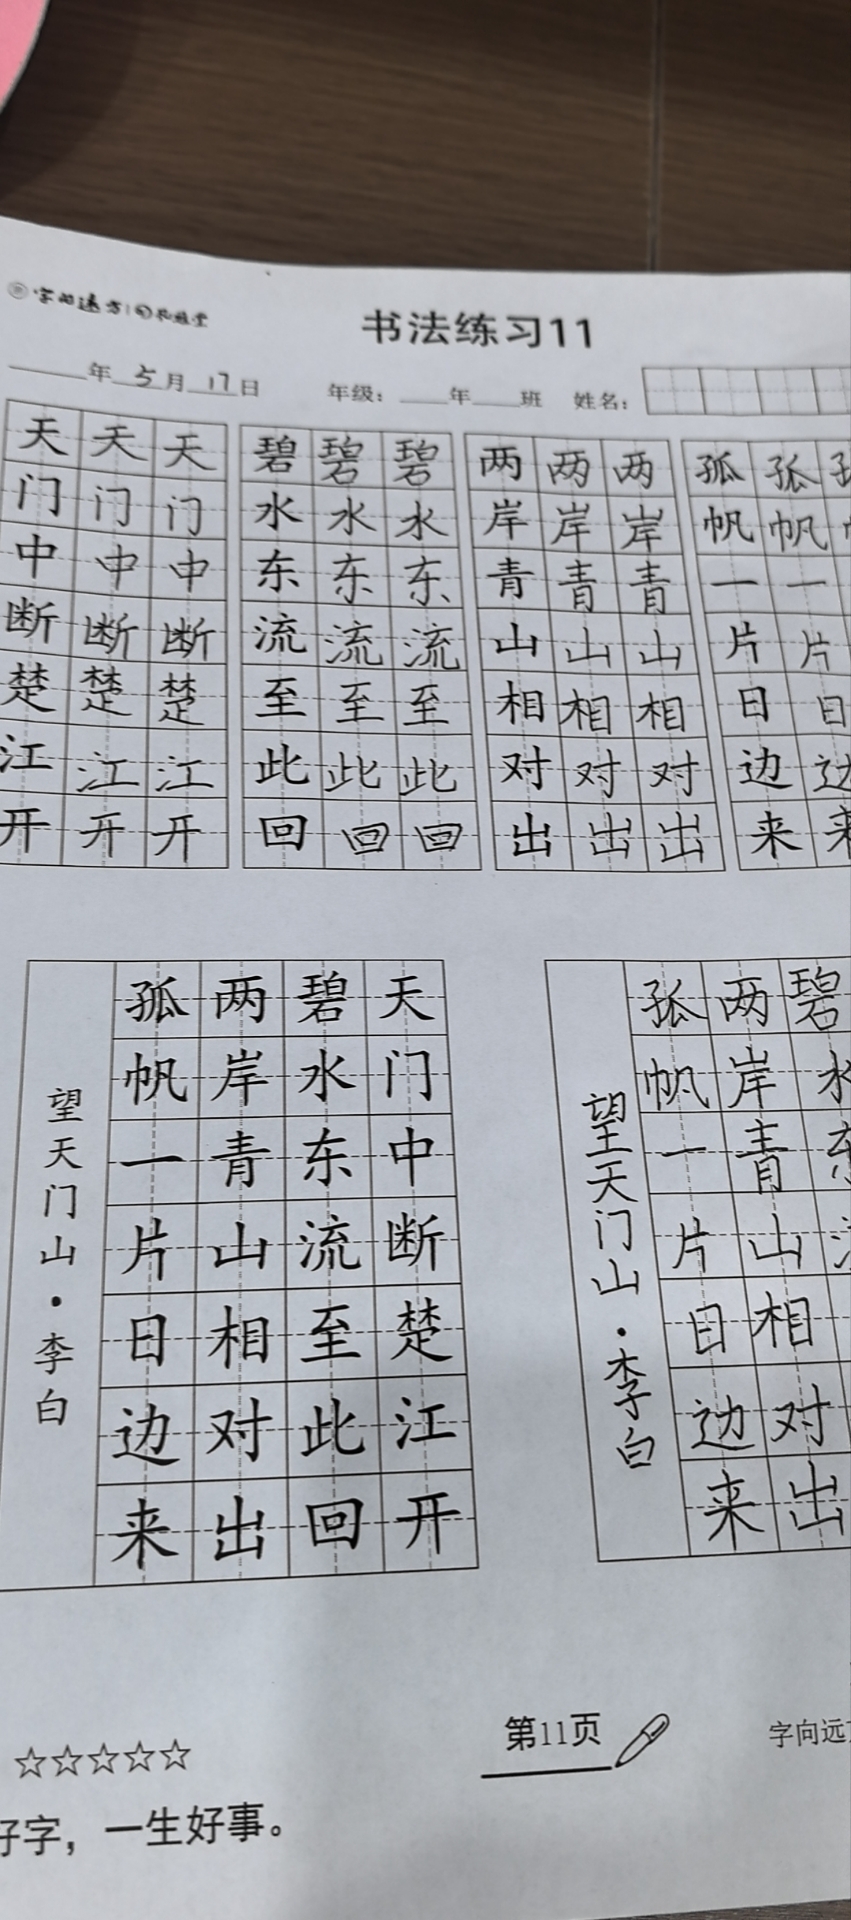 书法练习11
年 5月17日 年级： 年 班 姓名：
天天天 碧碧碧 两两两 孤孤孤
门门门 水水水 岸岸岸 帆帆
中中中 东东东 青青青 一一
断断断 流流流 山山山 片片
楚楚楚 至至至 相相相 日日
江江江 此此此 对对对 边边
开开开 回回回 出出出 来来
天门中断楚江开
碧水东流至此回
两岸青山相对出
孤帆一片日边来
望天门山·李白
碧水东
两岸青山相对出
孤帆一片日边来
望天门山·李白
☆☆☆☆☆
第11页
字向远
好字，一生好事。